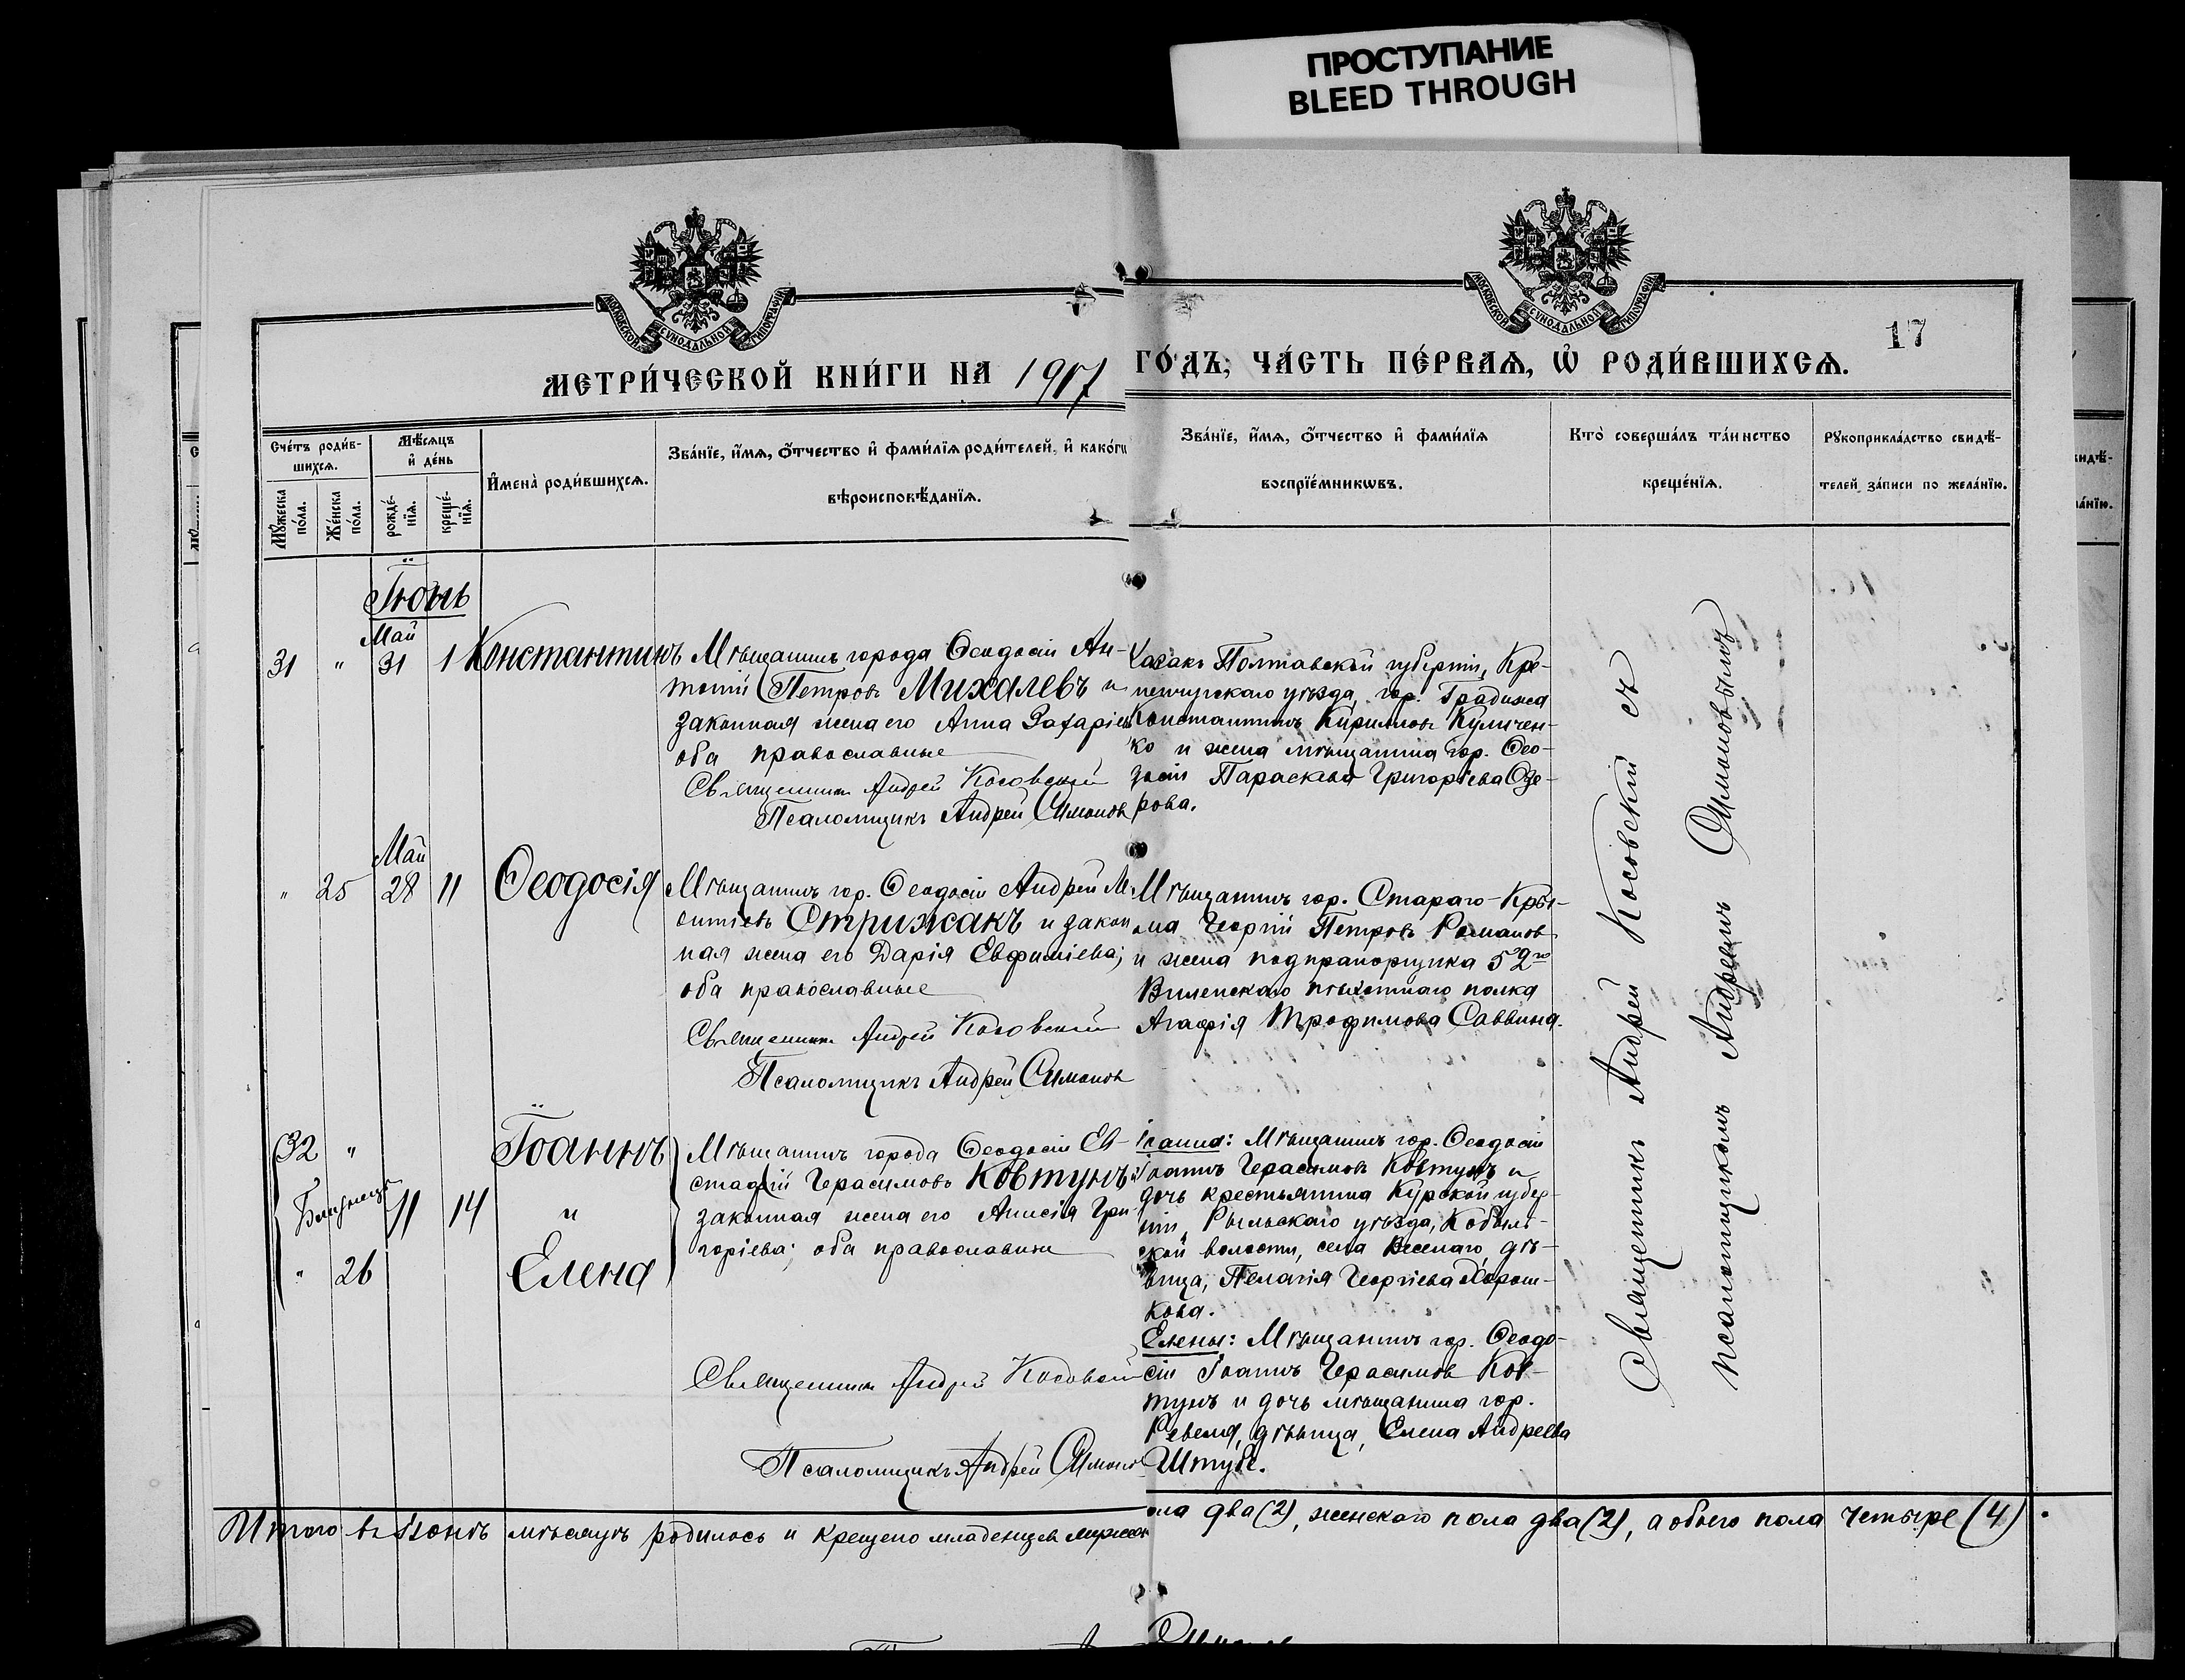 ПРОСТУПАНИЕ
BLEED THROUGH
МОСКОВСКОЙ СѴНОДАЛЬНОЙ ТИПОГРАФІИ
МОСКОВСКОЙ СѴНОДАЛЬНОЙ ТИПОГРАФІИ
17
МЕТРИ́ЧЕСКОЙ КНИ́ГИ НА 1917 ГО́ДЪ, ЧА́СТЬ ПЕ́РВАѦ, Ѡ҆ РОДИ́ВШИХСѦ.
Сче́тъ роди́в-
шихсѧ.
Мꙋжеска
по́ла.
Же́нска
по́ла.
Мѣ́сѧцъ
и҆ де́нь
рожде́-
нїѧ.
креще́-
нїѧ.
И҆мена̀ роди́вшихсѧ.
Зва́нїе, и҆́мѧ, ѻ҆́тчество и҆ фами́лїѧ роди́телей, и҆ како́гѡ
вѣроисповѣ́данїѧ.
Зва́нїе, и҆́мѧ, ѻ҆́тчество и҆ фами́лїѧ
воспрїе́мникѡвъ.
Кто̀ соверша́лъ та́инство
креще́нїѧ.
Рꙋкоприкла́дство свидѣ́-
телей за́писи по жела́нїю.
Іюнь
Май
31 " 31 1 Константинъ
Мѣщанинъ города Ѳеодосіи Ан-
тоній Петровъ Михалевъ и
законная жена его Анна Захаріев
оба православные
Священникъ Андрей Косовскій
Псаломщикъ Андрей Симонов
Казакъ Полтавской губерніи, Кре-
менчугскаго уѣзда, гор. Градижа
Константинъ Кириллов Куличен-
ко и жена мѣщанина гор. Ѳео-
досіи Параскева Григоріева Озе-
рова.
Май
" 25 28 11 Ѳеодосія
Мѣщанинъ гор. Ѳеодосіи Андрей
Стрижакъ и закон
ная жена его Дарія Евфиміева;
оба православные
Священникъ Андрей Косовскій
Псаломщикъ Андрей Симонов
Мѣщанинъ гор. Стараго-Кры-
ма Георгій Петровъ Романов
и жена подпрапорщика 52го
Виленскаго пѣхотнаго полка
Агафія Трофимова Саввина.
32 " Іоаннъ
Близнецы 11 14 "
" 26 Елена
Мѣщанинъ города Ѳеодосіи Ев-
стафій Герасимовъ Ковтунъ и
законная жена его Анисія Гри
горіева; оба православные
Священникъ Андрей Косовскій
Псаломщикъ Андрей Симонов
Іоанна: Мѣщанинъ гор. Ѳеодосіи
Іоаннъ Герасимовъ Ковтунъ и
дочь крестьянина Курской губер-
ніи, Рыльскаго уѣзда, Кобыль-
ской волости, села Веселаго, дѣ-
вица, Пелагія Георгіева Хорош-
кова.
Елены: Мѣщанинъ гор. Ѳеодо-
сіи Іоаннъ Герасимов Ков-
тунъ и дочь мѣщанина гор.
Ревеля, дѣвица, Елена Андреева
Штубе.
Священникъ Андрей Косовскій съ
псаломщикомъ Андреемъ Симоновымъ
Итого въ Іюнѣ мѣсяцѣ родилось и крещено младенцевъ мужеск
ола два (2), женскаго пола два (2), а обоего пола четыре (4).